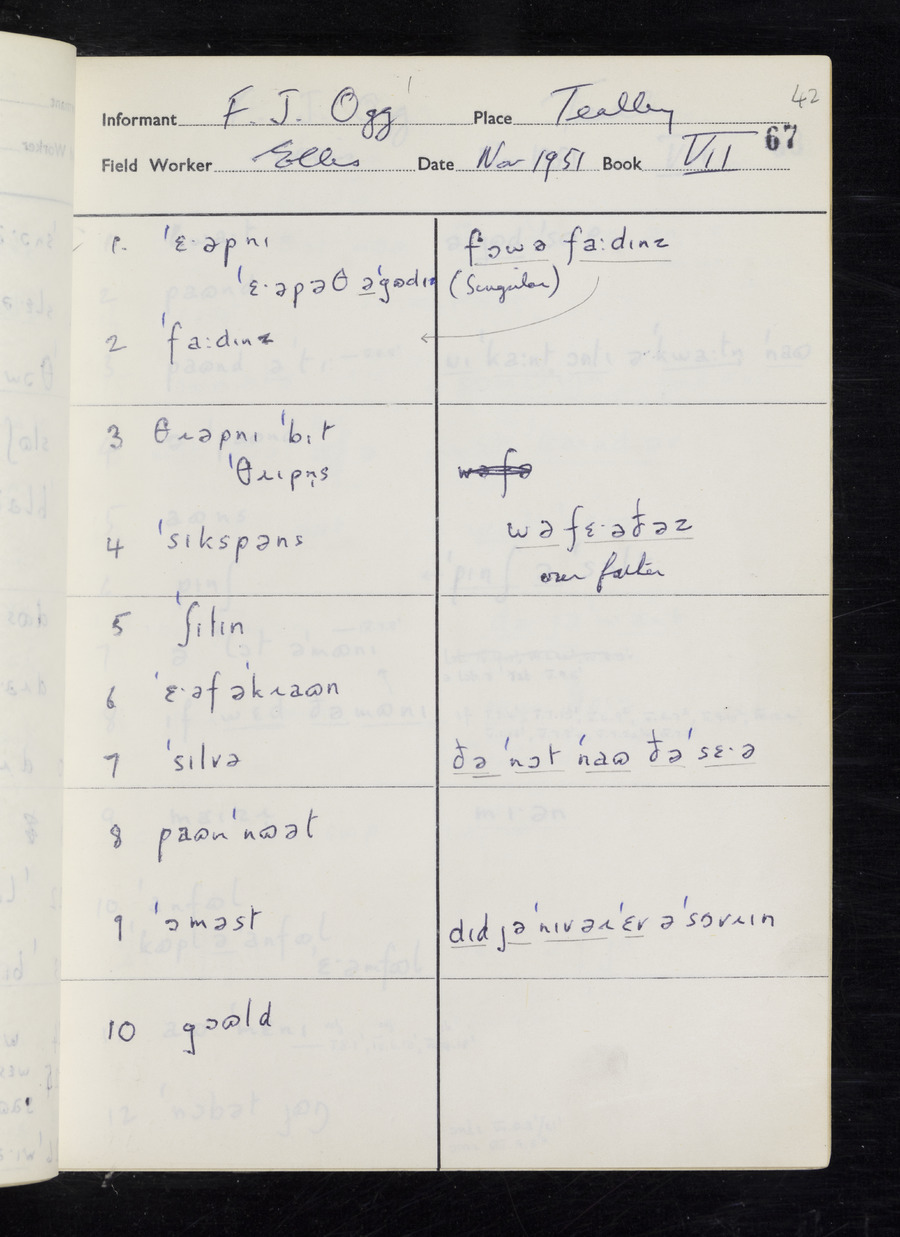 42
Informant F. J. Ogg Place Tealby
67
Field Worker Ellis Date Nov 1951 Book VII
1. ˈɛ·əpnɪ
ˈɛ·əpəθ əˈgʊdɪn
fɔwə fa:dɪnz
(Singular)
2 ˈfa:dɪnz
3 θɹəpnɪ ˈbɪt
ˈθɹɪpn̩s
4 ˈsɪkspəns
wəfɛ·əðəz
our father
5 ˈʃɪlɪn
6 ˈɛ·əf əˈkɹaʊn
7 ˈsɪlvə
ðə ˈnɔt ˈnaʊ ðəˈsɛ·ə
8 paʊnˈnʊət
9 ˈɔməst
dɪd jəˈnɪvəɹˈɛv əˈsɔvɹɪn
10 gɔʊld